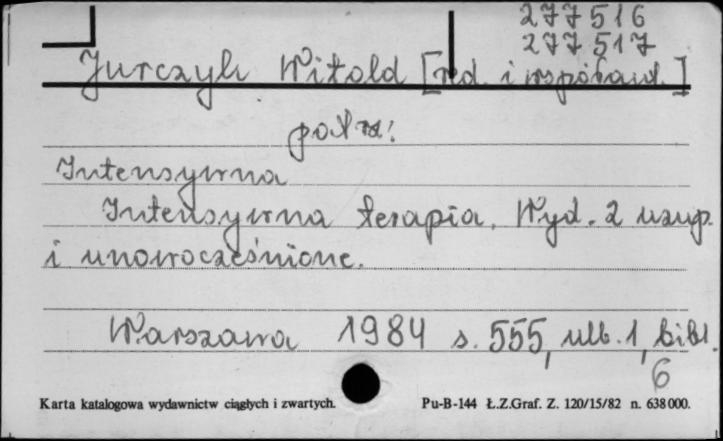 277516
277517
Jurczyk Witold [red. i współaut.]
patrz:
Intensywna
Intensywna terapia. Wyd. 2 uzup.
i unowocześnione.
Warszawa 1984 s. 555, ulb. 1, bibl.
6
Karta katalogowa wydawnictw ciągłych i zwartych. Pu-B-144 Ł.Z.Graf. Z. 120/15/82 n. 638000.